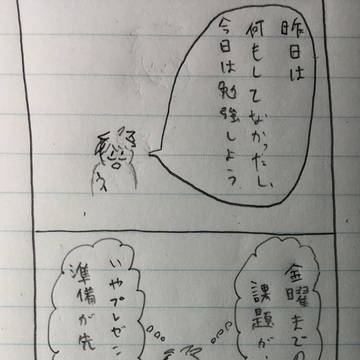 昨日は
何もしてなかったし、
今日は勉強しよう
金曜までの
課題が
いやプレゼン
準備が先